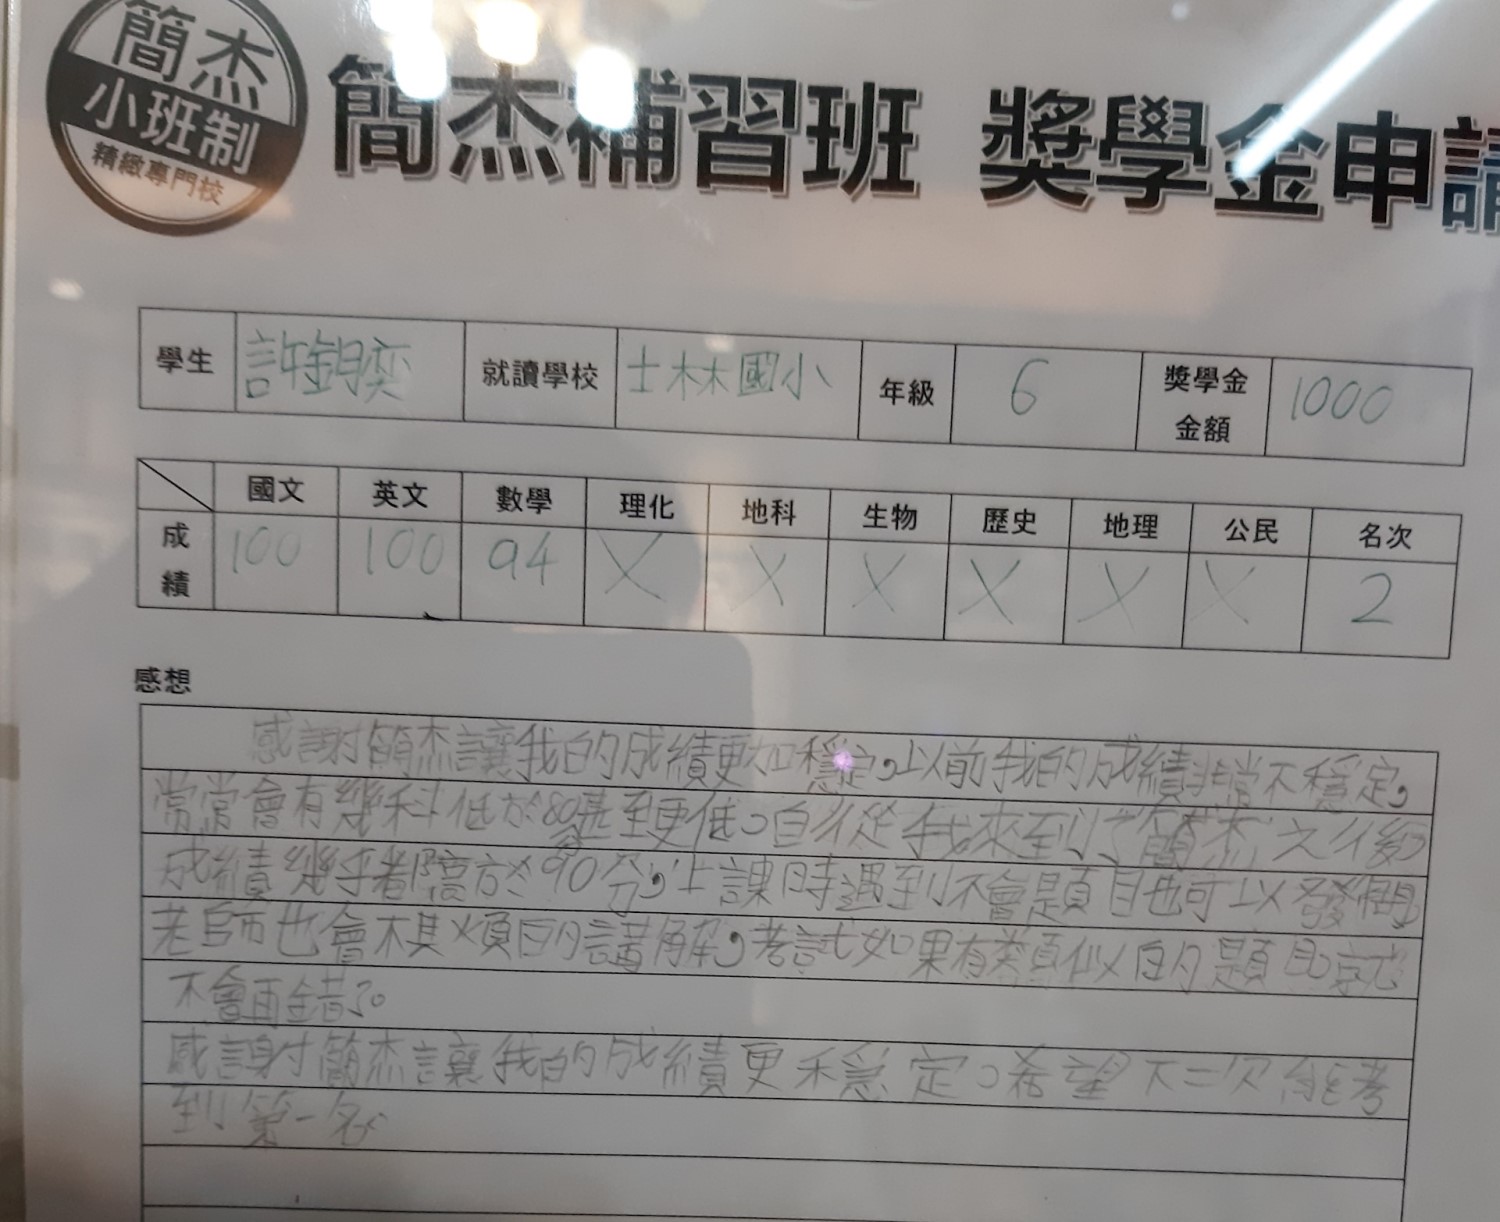 簡杰
小班制
精緻專門校
簡杰補習班 獎學金申請
學生 許鈅奕 就讀學校 士林國小 年級 6 獎學金金額 1000
國文 英文 數學 理化 地科 生物 歷史 地理 公民 名次
成績 100 100 94 X X X X X X 2
感想
感謝簡杰讓我的成績更加穩定,以前我的成績非常不穩定,
常常會有幾科低於80分甚至更低。自從我來到了"簡杰"之後
成績幾乎都高於90分,上課時遇到不會題目也可以發問
老師也會不其煩的講解,考試如果有類似的題目就
不會再錯了。
感謝簡杰讓我的成績更穩定。希望下一次能考
到第一名